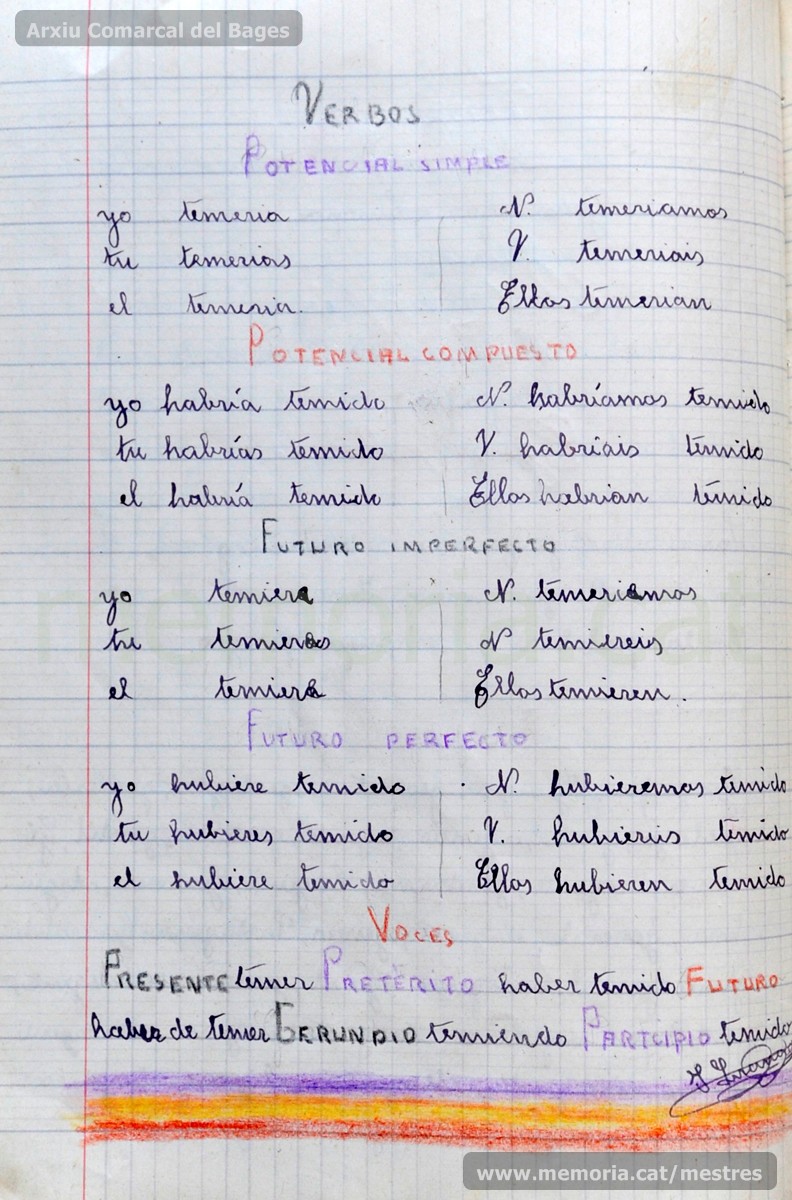 Arxiu Comarcal del Bages
VERBOS
POTENCIAL SIMPLE
yo temeria N. temeriamos
tu temerias V. temeriais
el temeria. Ellos temerian
POTENCIAL COMPUESTO
yo habría temido N. habríamos temido
tu habrías temido V. habriais temido
el habría temido Ellos habrian temido
FUTURO IMPERFECTO
yo temiera N. temeriamos
tu temieras N temiereis
el temiera Ellos temieren.
FUTURO PERFECTO
yo hubiere temido N. hubieramos temido
tu hubieres temido V. hubieris temido
el hubiere temido Ellos hubieren temido
VOCES
PRESENTE temer PRETÉRITO haber temido FUTURO
haber de temer GERUNDIO temiendo PARTCIPIO temido
memoria.cat
www.memoria.cat/mestres